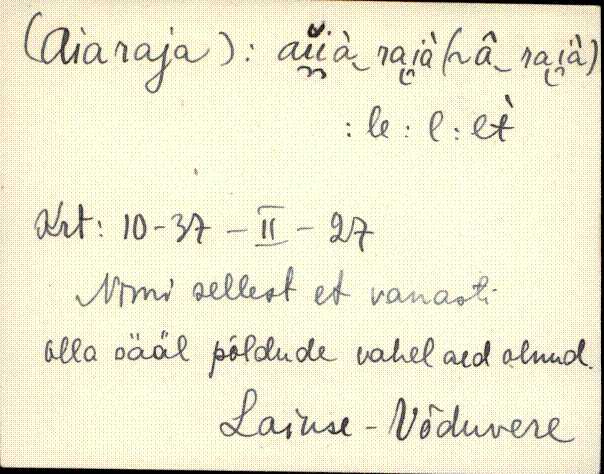 (Aiaraja): ai̯i̯à rai̯à (~ â rai̯à)
: le : l : lt̀
Krt: 10-37-II-27
Nimi sellest et vanasti
olla sääl põldude vahel aed olnud.
Laiuse - Võduvere